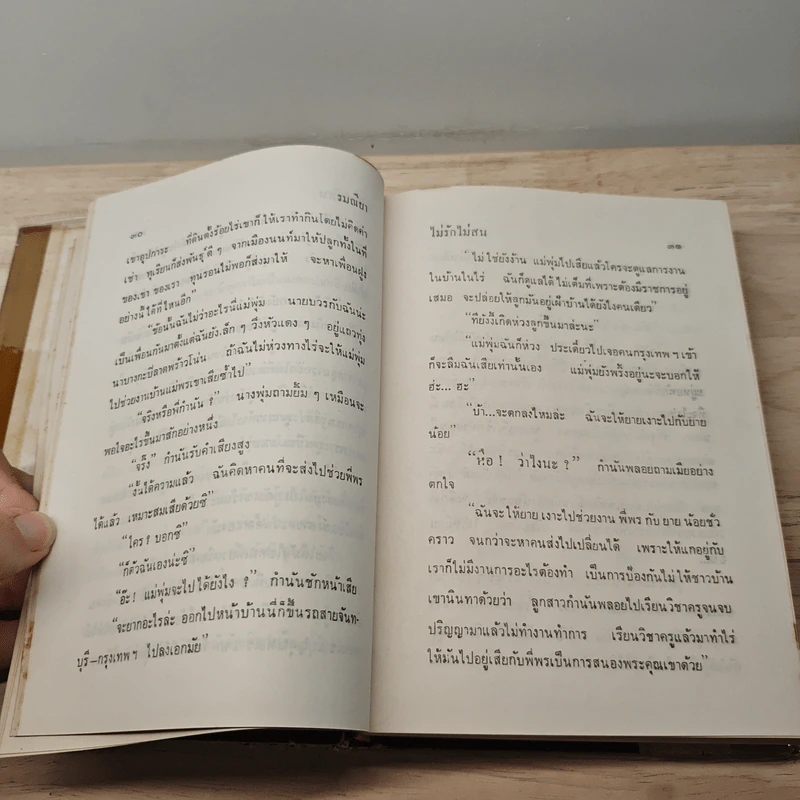 ๓๐
รมณียา
เขาอุปการะ ที่ดินตั้งร้อยไร่เขาก็ให้เราทำกินโดยไม่คิดค่า
เช่า ทุเรียนก็ส่งพันธุ์ดี ๆ จากเมืองนนท์มาให้ปลูกทั้งในที่
ของเขา ของเรา ทุนรอนไม่พอก็ส่งมาให้ จะหาเพื่อนฝูง
อย่างนี้ได้ที่ไหนอีก”
“ข้อนั้นฉันไม่ว่าอะไรนี่แม่พุ่ม นายบวรกับฉันน่ะ
เป็นเพื่อนกันมาตั้งแต่ฉันยังเล็ก ๆ วิ่งหัวแดง ๆ อยู่แถวทุ่ง
นาบางกะปิลาดพร้าวโน่น ถ้าฉันไม่ห่วงทางไร่จะให้แม่พุ่ม
ไปช่วยงานบ้านแม่พรเขาเสียซ้ำไป”
“จริงหรือพี่กำนัน ?” นางพุ่มถามยิ้ม ๆ เหมือนจะ
พอใจอะไรขึ้นมาสักอย่างหนึ่ง
“จริ๊ง” กำนันรับคำเสียงสูง
“งั้นได้ความแล้ว ฉันคิดหาคนที่จะส่งไปช่วยพี่พร
ได้แล้ว เหมาะสมเสียด้วยซิ”
“ใคร ? บอกซิ”
“ก็ตัวฉันเองน่ะซิ”
“อ๊ะ ! แม่พุ่มจะไปได้ยังไง ?” กำนันชักหน้าเสีย
“จะยากอะไรล่ะ ออกไปหน้าบ้านนี่ก็ขึ้นรถสายจันท-
บุรี–กรุงเทพฯ ไปลงเอกมัย”
ไม่รักไม่สน
๓๑
“ไม่ใช่ยังง้าน แม่พุ่มไปเสียแล้วใครจะดูแลการงาน
ในบ้านในไร่ ฉันก็ดูแลได้ไม่เต็มที่เพราะต้องมีราชการอยู่
เสมอ จะปล่อยให้ลูกมันอยู่เฝ้าบ้านได้ยังไงคนเดียว”
“ทียังงี้เกิดห่วงลูกขึ้นมาล่ะนะ”
“แม่พุ่มฉันก็ห่วง ประเดี๋ยวไปเจอคนกรุงเทพฯ เข้า
ก็จะลืมฉันเสียเท่านั้นเอง แม่พุ่มยังพริ้งอยู่นะจะบอกให้
ฮ่ะ... ฮะ”
“บ้า...จะตกลงไหมล่ะ ฉันจะให้ยายเงาะไปกับยาย
น้อย”
“หือ ! ว่าไงนะ ?” กำนันพลอยถามเมียอย่าง
ตกใจ
“ฉันจะให้ยายเงาะไปช่วยงาน พี่พร กับ ยาย น้อยชั่ว
คราว จนกว่าจะหาคนส่งไปเปลี่ยนได้ เพราะให้แกอยู่กับ
เราก็ไม่มีงานการอะไรต้องทำ เป็นการป้องกันไม่ให้ชาวบ้าน
เขานินทาด้วยว่า ลูกสาวกำนันพลอยไปเรียนวิชาครูจนจบ
ปริญญามาแล้วไม่ทำงานทำการ เรียนวิชาครูแล้วมาทำไร่
ให้มันไปอยู่เสียกับพี่พรเป็นการสนองพระคุณเขาด้วย”